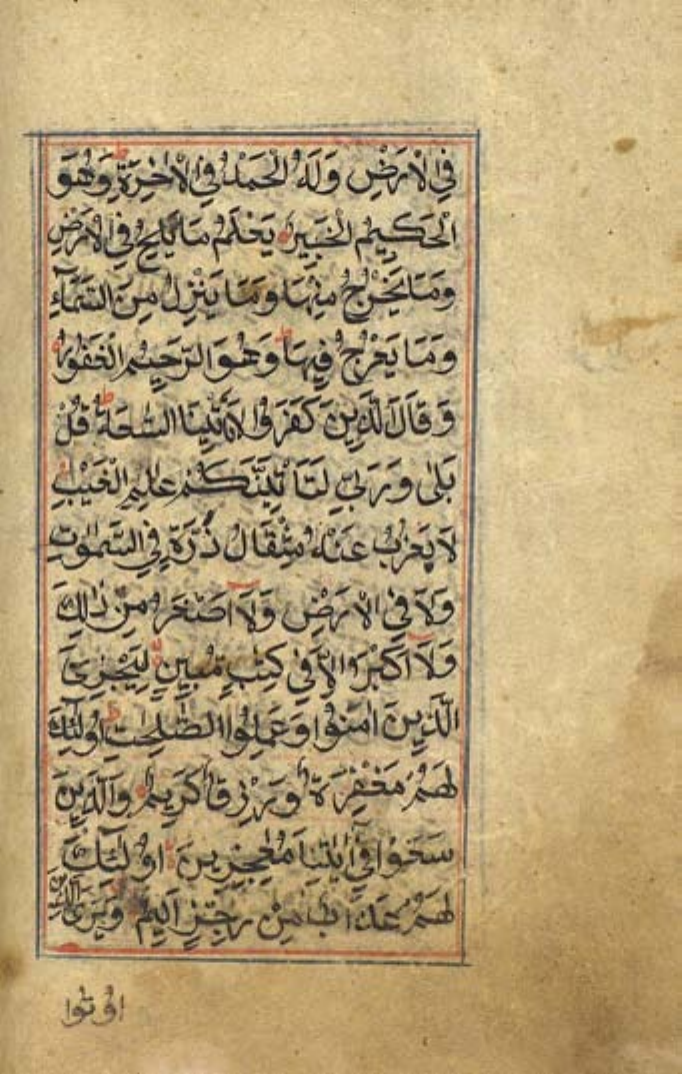 فِي الْاَرْضِ وَلَهُ الْحَمْدُ فِي الْاٰخِرَةِ ط وَهُوَ
الْحَكِيْمُ الْخَبِيْرُ يَعْلَمُ مَا يَلِجُ فِي الْاَرْضِ
وَمَا يَخْرُجُ مِنْهَا وَمَا يَنْزِلُ مِنَ السَّمَآءِ
وَمَا يَعْرُجُ فِيْهَا ط وَهُوَ الرَّحِيْمُ الْغَفُوْرُ
وَقَالَ الَّذِيْنَ كَفَرُوْا لَا تَأْتِيْنَا السَّاعَةُ ط قُلْ
بَلٰى وَرَبِّيْ لَتَاْتِيَنَّكُمْ عٰلِمِ الْغَيْبِ
لَا يَعْزُبُ عَنْهُ مِثْقَالُ ذَرَّةٍ فِي السَّمٰوٰتِ
وَلَا فِي الْاَرْضِ وَلَآ اَصْغَرُ مِنْ ذٰلِكَ
وَلَآ اَكْبَرُ اِلَّا فِيْ كِتٰبٍ مُّبِيْنٍ لِيَجْزِيَ
الَّذِيْنَ اٰمَنُوْا وَعَمِلُوا الصّٰلِحٰتِ ط اُولٰٓئِكَ
لَهُمْ مَغْفِرَةٌ وَّرِزْقٌ كَرِيْمٌ وَالَّذِيْنَ
سَعَوْا فِيْٓ اٰيٰتِنَا مُعٰجِزِيْنَ اُولٰٓئِكَ
لَهُمْ عَذَابٌ مِّنْ رِّجْزٍ اَلِيْمٌ وَيَرَى الَّذِيْنَ
اُوْتُوا